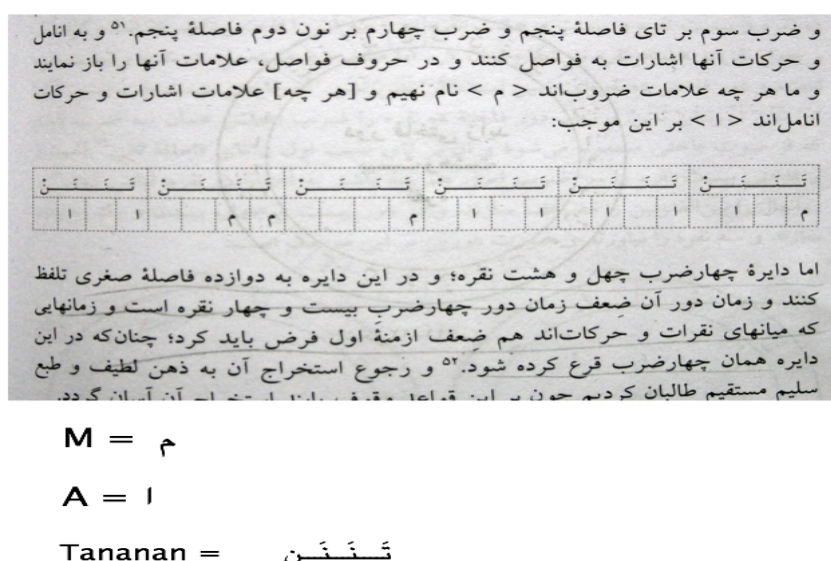 و ضرب سوم بر تای فاصلهٔ پنجم و ضرب چهارم بر نون دوم فاصلهٔ پنجم.۵۱ و به انامل
و حرکات آنها اشارات به فواصل کنند و در حروف فواصل، علامات آنها را باز نمایند
و ما هر چه علامات ضروب‌اند < م > نام نهیم و [هر چه] علامات اشارات و حرکات
انامل‌اند < ا > بر این موجب:
تَـنَـنَـنْ تَـنَـنَـنْ تَـنَـنَـنْ تَـنَـنَـنْ تَـنَـنَـنْ تَـنَـنَـنْ
م ا ا ا ا ا م م م ا ا
اما دایرهٔ چهارضرب چهل و هشت نقره؛ و در این دایره به دوازده فاصلهٔ صغری تلفظ
کنند و زمان دور آن ضِعف زمان دور چهارضرب بیست و چهار نقره است و زمانهایی
که میانهای نقرات و حرکات‌اند هم ضِعف ازمنهٔ اول فرض باید کرد؛ چنان‌که در این
دایره همان چهارضرب قرع کرده شود.۵۲ و رجوع استخراج آن به ذهن لطیف و طبع
سلیم مستقیم طالبان کردیم چون بر این قواعد وقوف یابند استخراج آن آسان گردد.
M = م
A = ا
Tananan = تَـنَـنَـن